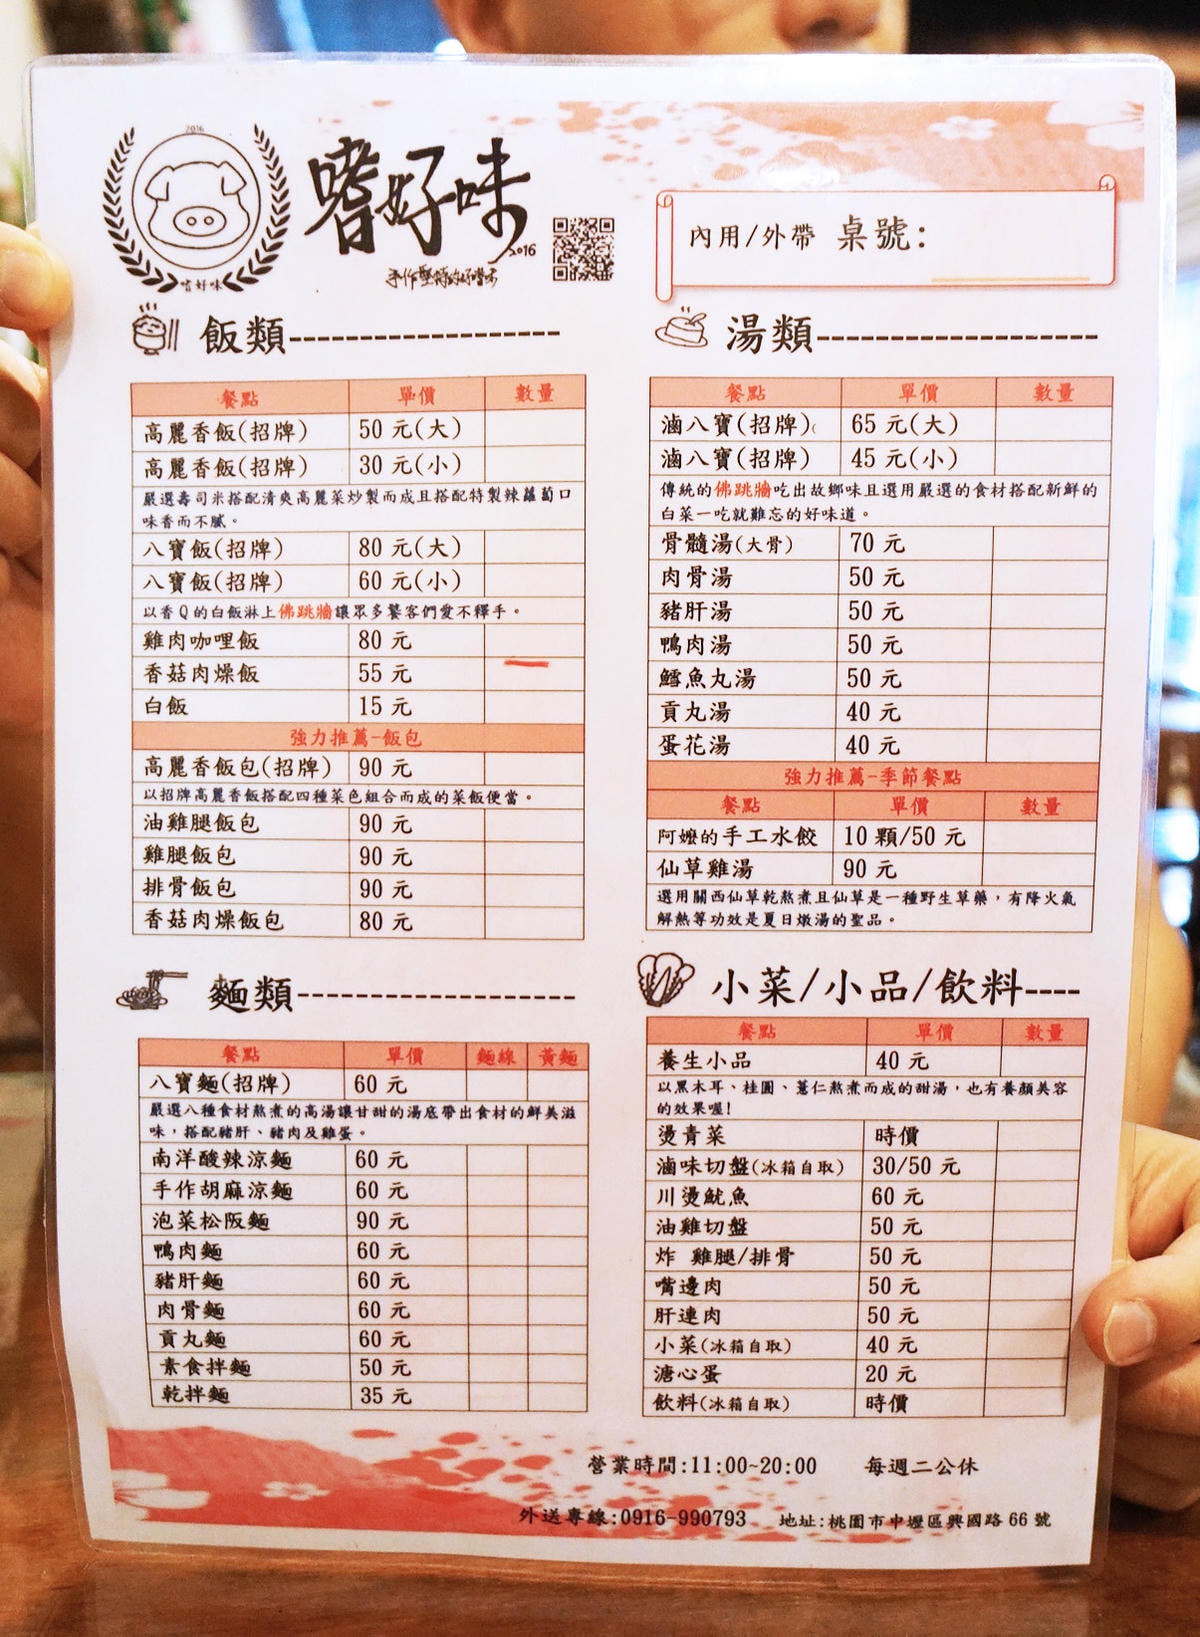 2016
嗜好味
嗜好味
2016
手作堅持的好嚐味
內用/外帶 桌號:
飯類
餐點 單價 數量
高麗香飯(招牌) 50 元(大)
高麗香飯(招牌) 30 元(小)
嚴選壽司米搭配清爽高麗菜炒製而成且搭配特製辣蘿蔔口
味香而不膩。
八寶飯(招牌) 80 元(大)
八寶飯(招牌) 60 元(小)
以香Q的白飯淋上佛跳牆讓眾多饕客們愛不釋手。
雞肉咖哩飯 80 元
香菇肉燥飯 55 元
白飯 15 元
強力推薦-飯包
高麗香飯包(招牌) 90 元
以招牌高麗香飯搭配四種菜色組合而成的菜飯便當。
油雞腿飯包 90 元
雞腿飯包 90 元
排骨飯包 90 元
香菇肉燥飯包 80 元
湯類
餐點 單價 數量
滷八寶(招牌) 65 元(大)
滷八寶(招牌) 45 元(小)
傳統的佛跳牆吃出故鄉味且選用嚴選的食材搭配新鮮的
白菜一吃就難忘的好味道。
骨髓湯(大骨) 70 元
肉骨湯 50 元
豬肝湯 50 元
鴨肉湯 50 元
鱈魚丸湯 50 元
貢丸湯 40 元
蛋花湯 40 元
強力推薦-季節餐點
餐點 單價 數量
阿嬤的手工水餃 10 顆/50 元
仙草雞湯 90 元
選用關西仙草乾熬煮且仙草是一種野生草藥，有降火氣
解熱等功效是夏日燉湯的聖品。
麵類
餐點 單價 麵線 黃麵
八寶麵(招牌) 60 元
嚴選八種食材熬煮的高湯讓甘甜的湯底帶出食材的鮮美滋
味，搭配豬肝、豬肉及雞蛋。
南洋酸辣涼麵 60 元
手作胡麻涼麵 60 元
泡菜松阪麵 90 元
鴨肉麵 60 元
豬肝麵 60 元
肉骨麵 60 元
貢丸麵 60 元
素食拌麵 50 元
乾拌麵 35 元
小菜/小品/飲料
餐點 單價 數量
養生小品 40 元
以黑木耳、桂圓、薏仁熬煮而成的甜湯，也有養顏美容
的效果喔!
燙青菜 時價
滷味切盤(冰箱自取) 30/50 元
川燙魷魚 60 元
油雞切盤 50 元
炸 雞腿/排骨 50 元
嘴邊肉 50 元
肝連肉 50 元
小菜(冰箱自取) 40 元
溏心蛋 20 元
飲料(冰箱自取) 時價
營業時間:11:00~20:00 每週二公休
外送專線:0916-990793 地址:桃園市中壢區興國路 66 號